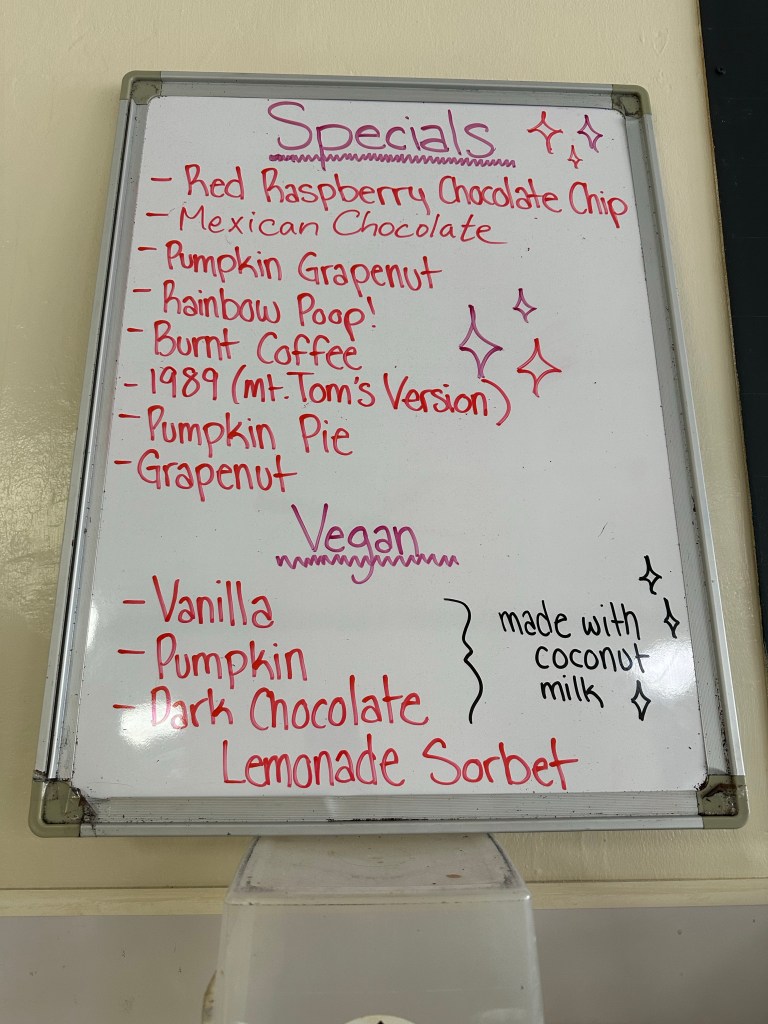 Specials
- Red Raspberry Chocolate Chip
- Mexican Chocolate
- Pumpkin Grapenut
- Rainbow Poop!
- Burnt Coffee
- 1989 (mt. Tom's Version)
- Pumpkin Pie
- Grapenut
Vegan
- Vanilla
- Pumpkin
- Dark Chocolate
made with
coconut
milk
Lemonade Sorbet